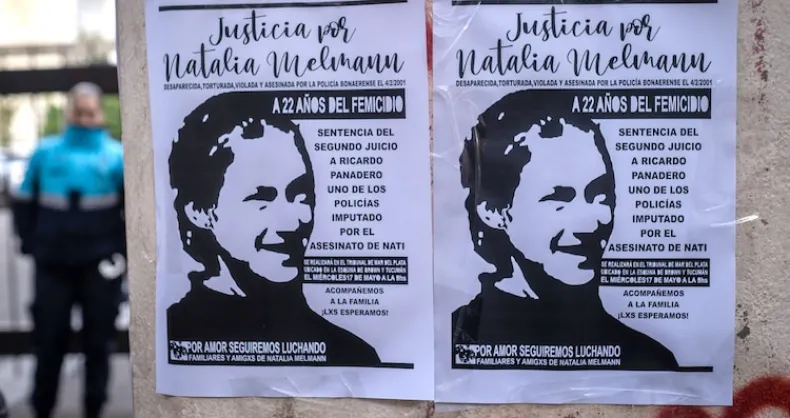 Justicia por
Natalia Melmann
DESAPARECIDA, TORTURADA, VIOLADA Y ASESINADA POR LA POLICÍA BONAERENSE EL 4/2/2001
A 22 AÑOS DEL FEMICIDIO
SENTENCIA DEL
SEGUNDO JUICIO
A RICARDO
PANADERO
UNO DE LOS
POLICÍAS
IMPUTADO
POR EL
ASESINATO DE NATI
SE REALIZARÁ EN EL TRIBUNAL DE MAR DEL PLATA
UBICADO EN LA ESQUINA DE BROWN Y TUCUMÁN
EL MIÉRCOLES 17 DE MAYO A LA 9hs
ACOMPAÑEMOS
A LA FAMILIA
¡LXS ESPERAMOS!
POR AMOR SEGUIREMOS LUCHANDO
FAMILIARES Y AMIGXS DE NATALIA MELMANN
Justicia por
Natalia Melmann
DESAPARECIDA, TORTURADA, VIOLADA Y ASESINADA POR LA POLICÍA BONAERENSE EL 4/2/2001
A 22 AÑOS DEL FEMICIDIO
SENTENCIA DEL
SEGUNDO JUICIO
A RICARDO
PANADERO
UNO DE LOS
POLICÍAS
IMPUTADO
POR EL
ASESINATO DE NATI
SE REALIZARÁ EN EL TRIBUNAL DE MAR DEL PLATA
UBICADO EN LA ESQUINA DE BROWN Y TUCUMÁN
EL MIÉRCOLES 17 DE MAYO A LA 9hs
ACOMPAÑEMOS
A LA FAMILIA
¡LXS ESPERAMOS!
POR AMOR SEGUIREMOS LUCHANDO
FAMILIARES Y AMIGXS DE NATALIA MELMANN